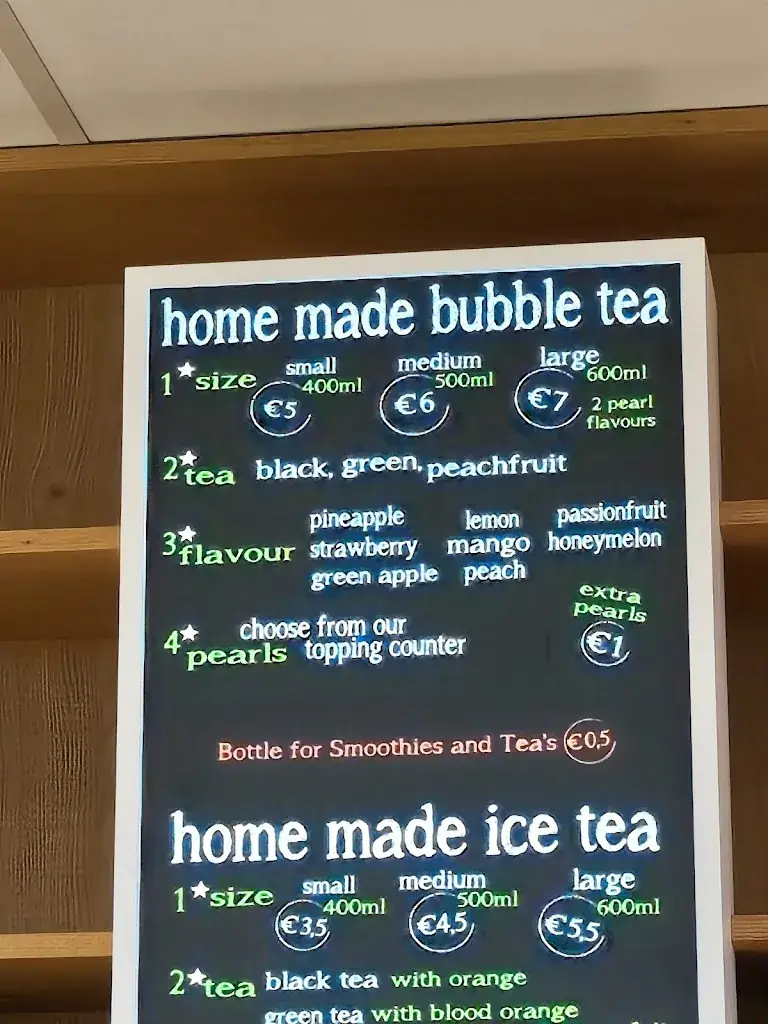 home made bubble tea
1*size small 400ml €5 medium 500ml €6 large 600ml €7 2 pearl flavours
2*tea black, green, peachfruit
3*flavour pineapple lemon passionfruit
strawberry mango honeymelon
green apple peach
4*pearls choose from our topping counter extra pearls €1
Bottle for Smoothies and Tea's €0,5
home made ice tea
1*size small 400ml €3,5 medium 500ml €4,5 large 600ml €5,5
2*tea black tea with orange
green tea with blood orange